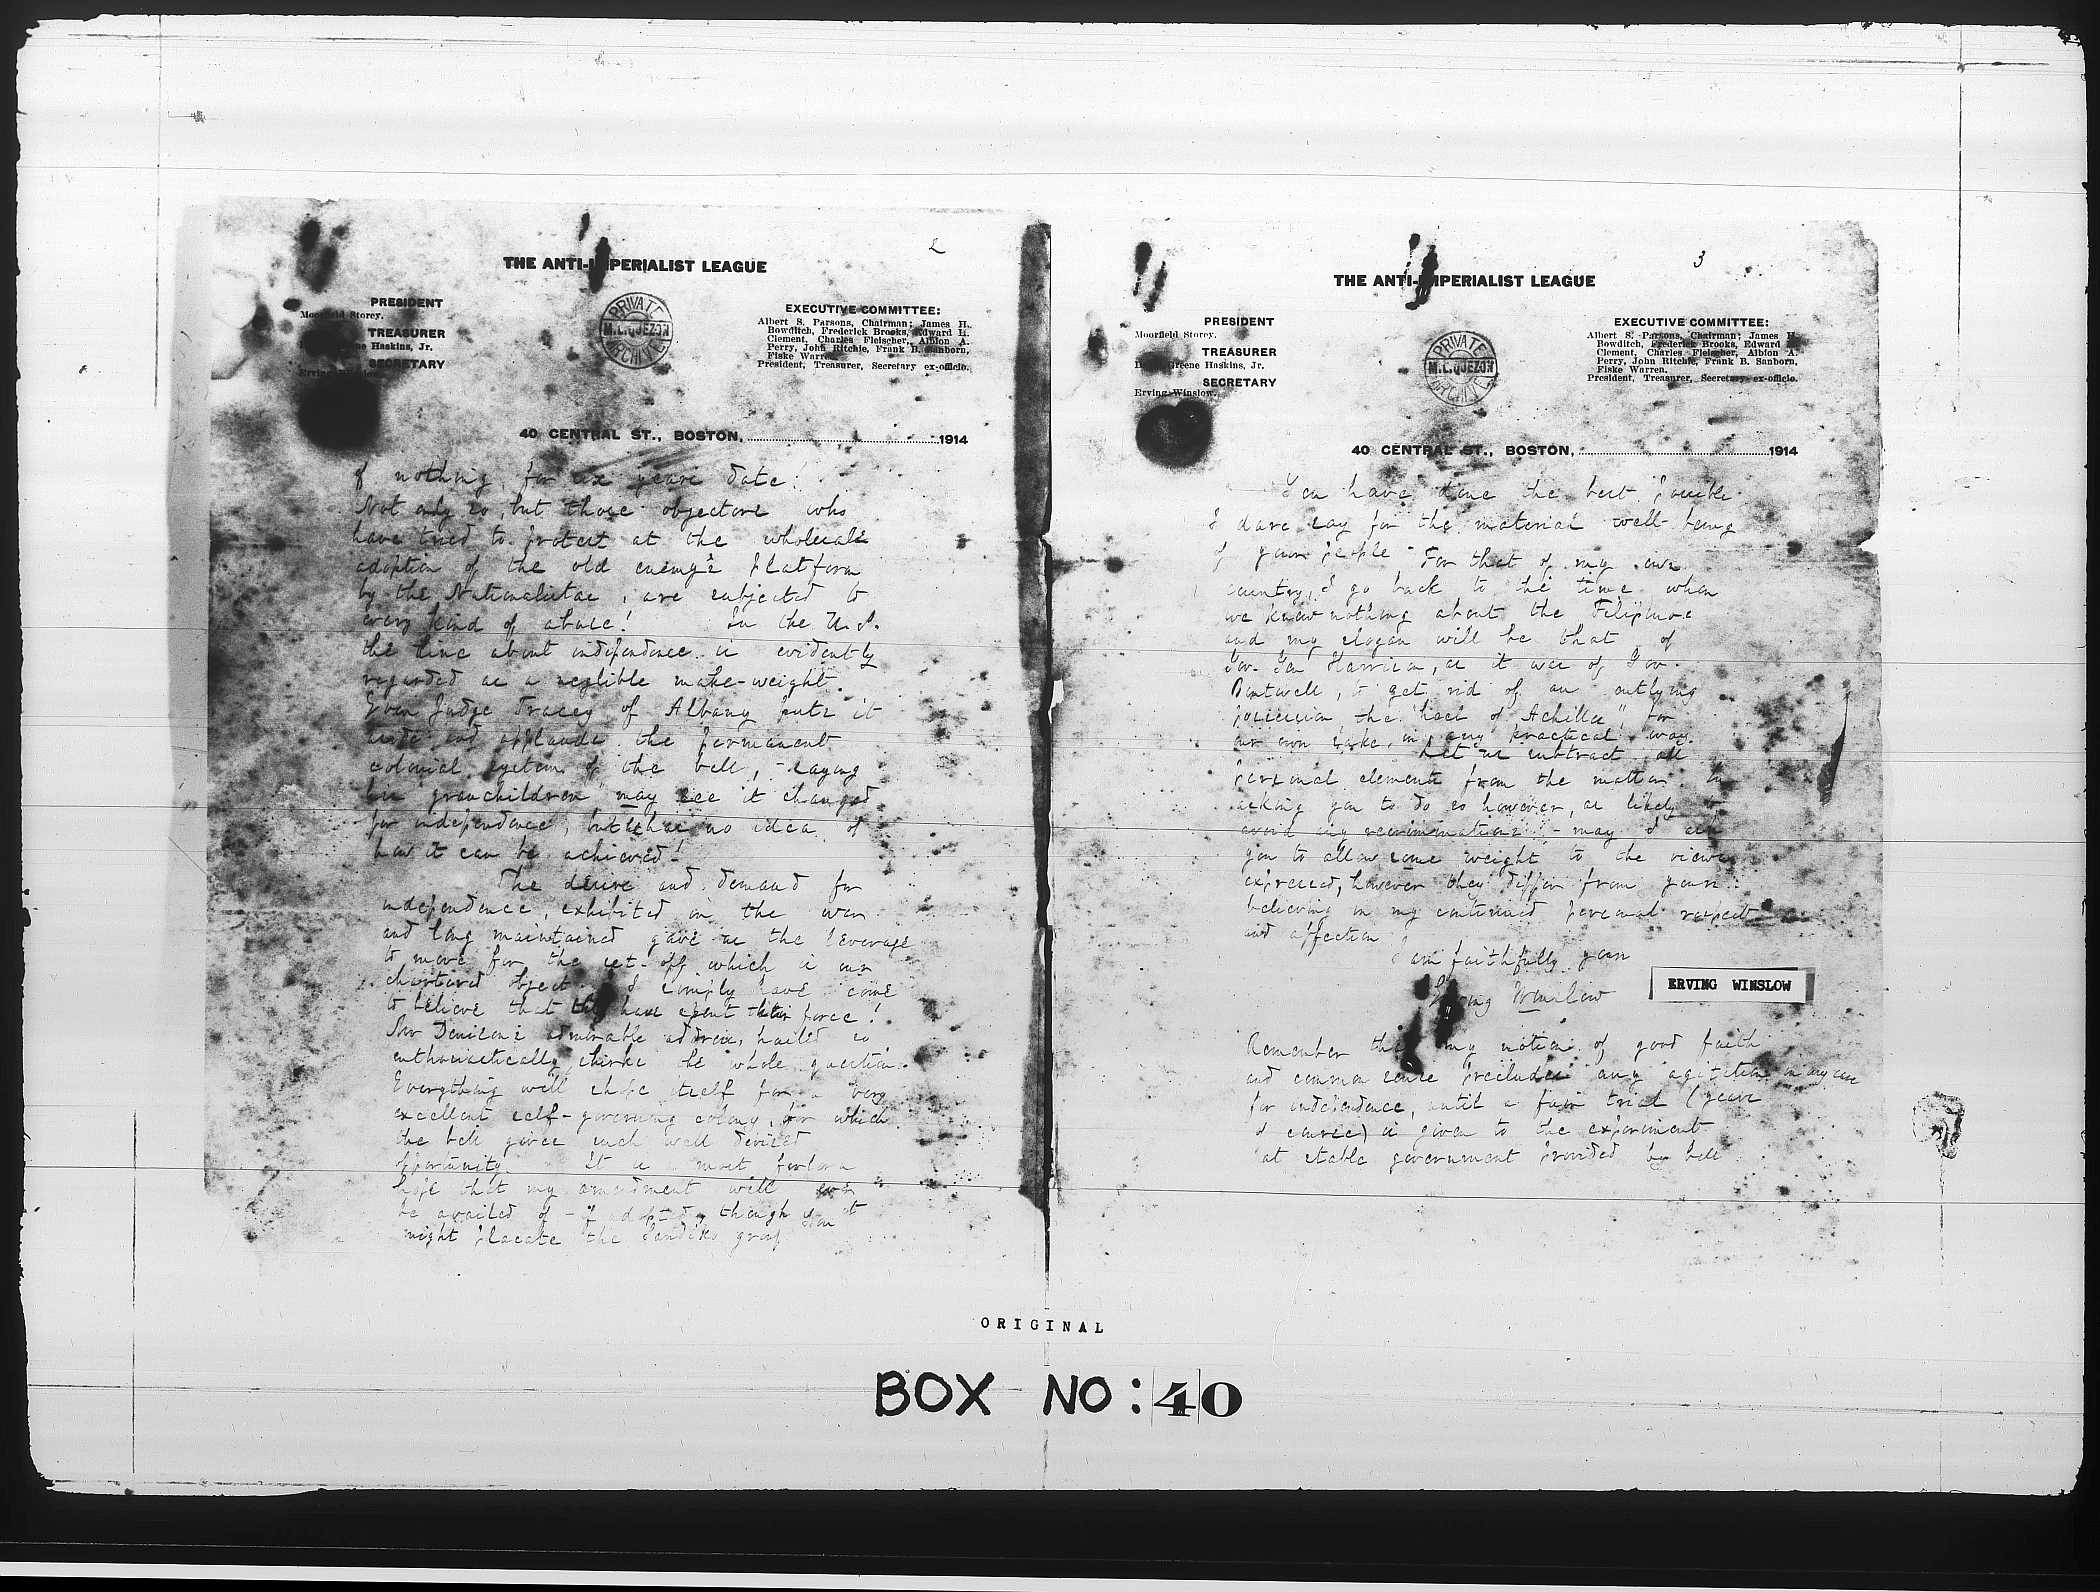 2
THE ANTI-IMPERIALIST LEAGUE
PRESIDENT
Moorfield Storey.
TREASURER
Haskins, Jr.
SECRETARY
Erving
PRIVATE
M.L.QUEZON
ARCHIVE
EXECUTIVE COMMITTEE:
Albert S. Parsons, Chairman; James H.
Bowditch, Frederick Brooks, Edward H.
Clement, Charles Fleischer, Albion A.
Perry, John Ritchie, Frank B. Sanborn,
Fiske Warren.
President, Treasurer, Secretary ex-officio.
40 CENTRAL ST., BOSTON, 1914
of nothing, for six years date!
Not only so, but those objectors who
have tried to protest at the wholesale
adoption of the old enemy's platform
by the Nationalistas, are subjected to
every kind of abuse! In the U.S.
the line about independence is evidently
regarded as a neglible make-weight.
Even Judge Tracey of Albany puts it
aside and applauds the permanent
colonial system of the bill, - saying
his grandchildren "may see it changed
for independence", but has no idea of
how it can be achieved!
The desire and demand for
independence, exhibited in the war
and long maintained gave us the leverage
to move for the set-off which is our
chartered object. I simply have come
to believe that they have spent their force!
Mr Denison's admirable address, hailed so
enthusiastically, shirks the whole question.
Everything will shape itself for a very
excellent self-governing colony, for which
the bill gives such well devised
opportunity. It is a most forlorn
hope that my amendment will ever
be availed of - if adopted, though it
might placate the group
3
THE ANTI-IMPERIALIST LEAGUE
PRESIDENT
Moorfield Storey.
TREASURER
Greene Haskins, Jr.
SECRETARY
Erving Winslow.
PRIVATE
M.L.QUEZON
ARCHIVE
EXECUTIVE COMMITTEE:
Albert S. Parsons, Chairman; James H.
Bowditch, Frederick Brooks, Edward H.
Clement, Charles Fleischer, Albion A.
Perry, John Ritchie, Frank B. Sanborn,
Fiske Warren.
President, Treasurer, Secretary ex-officio.
40 CENTRAL ST., BOSTON, 1914
You have done the best possible
I dare say for the material well-being
of your people - For that of my own
country, I go back to the time when
we knew nothing about the Filipinos
and my slogan will be that of
Gov. Gen Harrison, as it was of Gov.
Boutwell, to get rid of an outlying
possession the "heel of Achilles", for
our own sake, in any practical way.
Let us subtract all
personal elements from the matter. In
asking you to do so however, as likely to
avoid any recriminations - may I ask
you to allow some weight to the views
expressed, however they differ from yours
believing in my continued personal respect
and affection
I am faithfully yours
Erving Winslow
ERVING WINSLOW
Remember that my notion of good faith
and common sense precludes any agitation in any case
for independence, until a fair trial (years
of course) is given to the experiment
at stable government provided by bill
ORIGINAL
BOX NO: 40